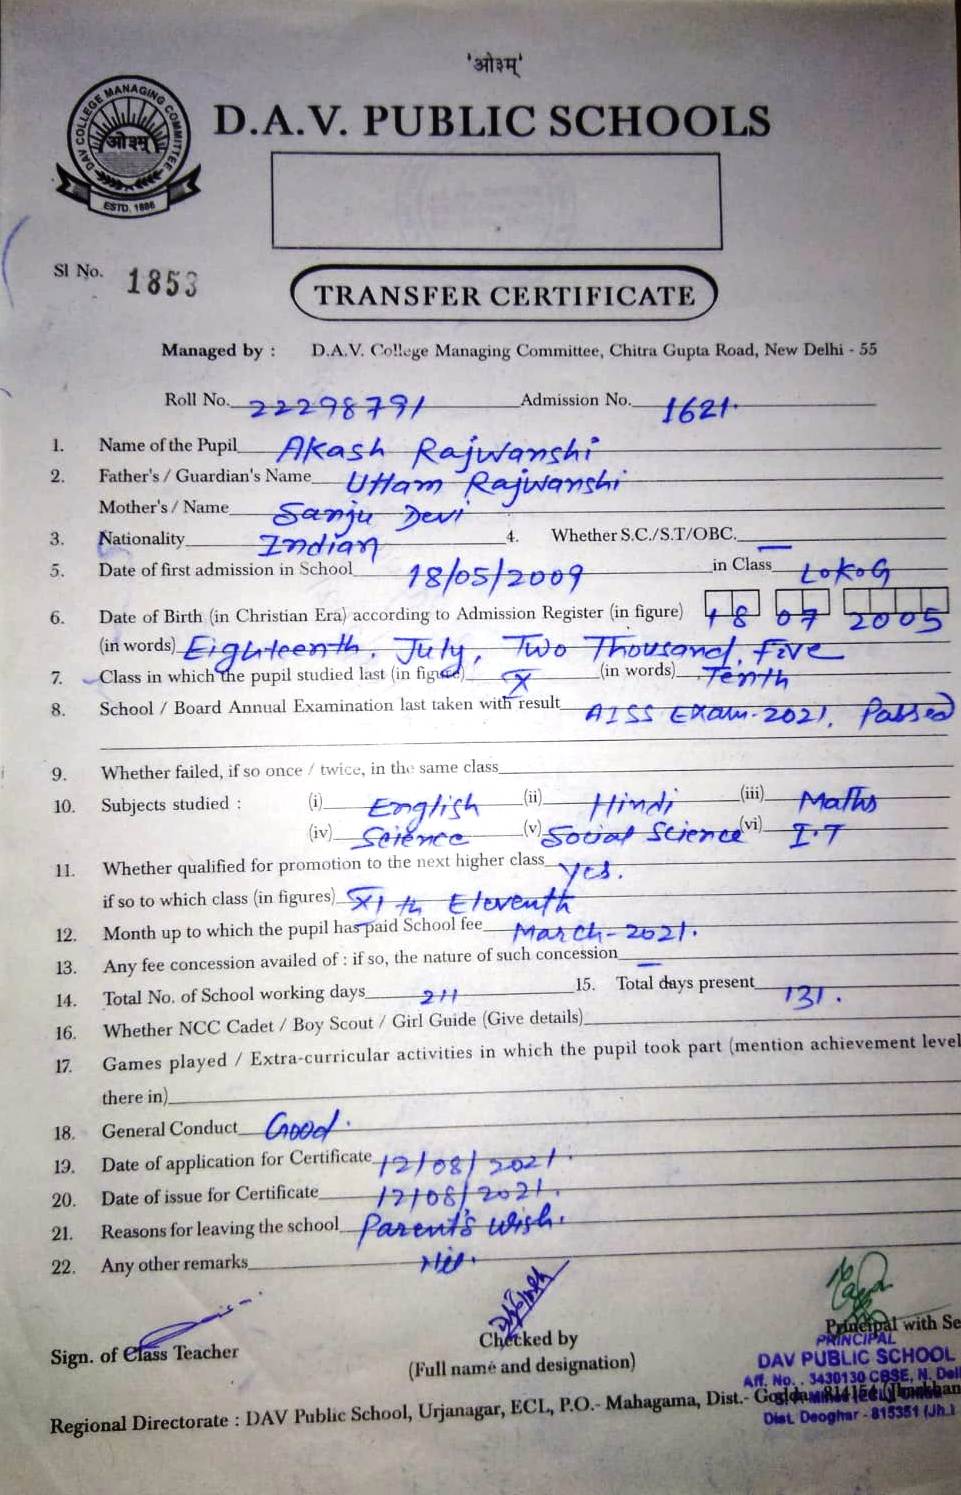 'ओ३म्'
DAV COLLEGE MANAGING COMMITTEE
ओ३म्
ESTD. 1886
D.A.V. PUBLIC SCHOOLS
Sl No. 1853
TRANSFER CERTIFICATE
Managed by : D.A.V. College Managing Committee, Chitra Gupta Road, New Delhi - 55
Roll No. 22298791 Admission No. 1621.
1. Name of the Pupil Akash Rajwanshi
2. Father's / Guardian's Name Uttam Rajwanshi
Mother's / Name Sanju Devi
3. Nationality Indian 4. Whether S.C./S.T/OBC. —
5. Date of first admission in School 18/05/2009 in Class LOKOG
6. Date of Birth (in Christian Era) according to Admission Register (in figure) 18 07 2005
(in words) Eighteenth, July, Two Thousand, Five
7. Class in which the pupil studied last (in figure) X (in words) Tenth
8. School / Board Annual Examination last taken with result AISS Exam-2021, Passed
9. Whether failed, if so once / twice, in the same class
10. Subjects studied : (i) English (ii) Hindi (iii) Maths
(iv) Science (v) Social Science (vi) I.T
11. Whether qualified for promotion to the next higher class Yes.
if so to which class (in figures) XI th Eleventh
12. Month up to which the pupil has paid School fee March-2021.
13. Any fee concession availed of : if so, the nature of such concession —
14. Total No. of School working days 211 15. Total days present 131.
16. Whether NCC Cadet / Boy Scout / Girl Guide (Give details)
17. Games played / Extra-curricular activities in which the pupil took part (mention achievement level
there in)
18. General Conduct Good.
19. Date of application for Certificate 12/08/2021.
20. Date of issue for Certificate 12/08/2021.
21. Reasons for leaving the school Parent's wish.
22. Any other remarks Nil.
Sign. of Class Teacher
Checked by
(Full name and designation)
Principal with Se
PRINCIPAL
DAV PUBLIC SCHOOL
Aff. No. . 3430130 CBSE, N. Del
Dist. Deoghar - 815351 (Jh.)
Regional Directorate : DAV Public School, Urjanagar, ECL, P.O.- Mahagama, Dist.- Godda